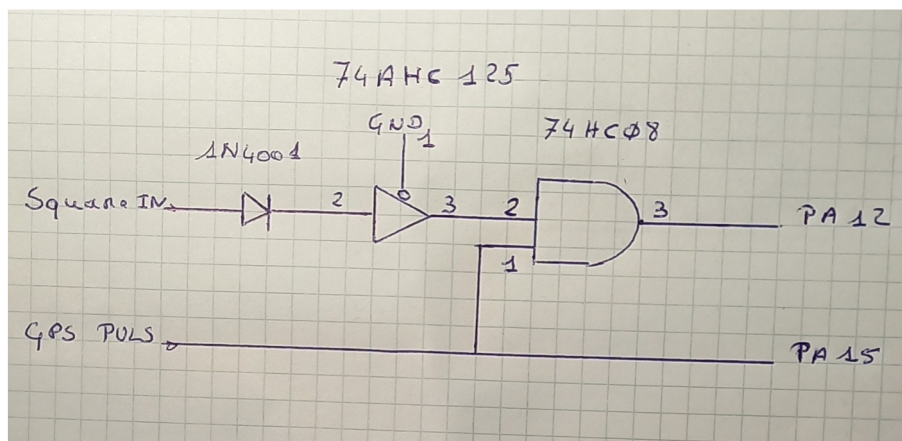 74AHC 125
GND
1
74HCØ8
1N4001
Square IN
2
3
2
3
PA 12
1
GPS PULS
PA 15